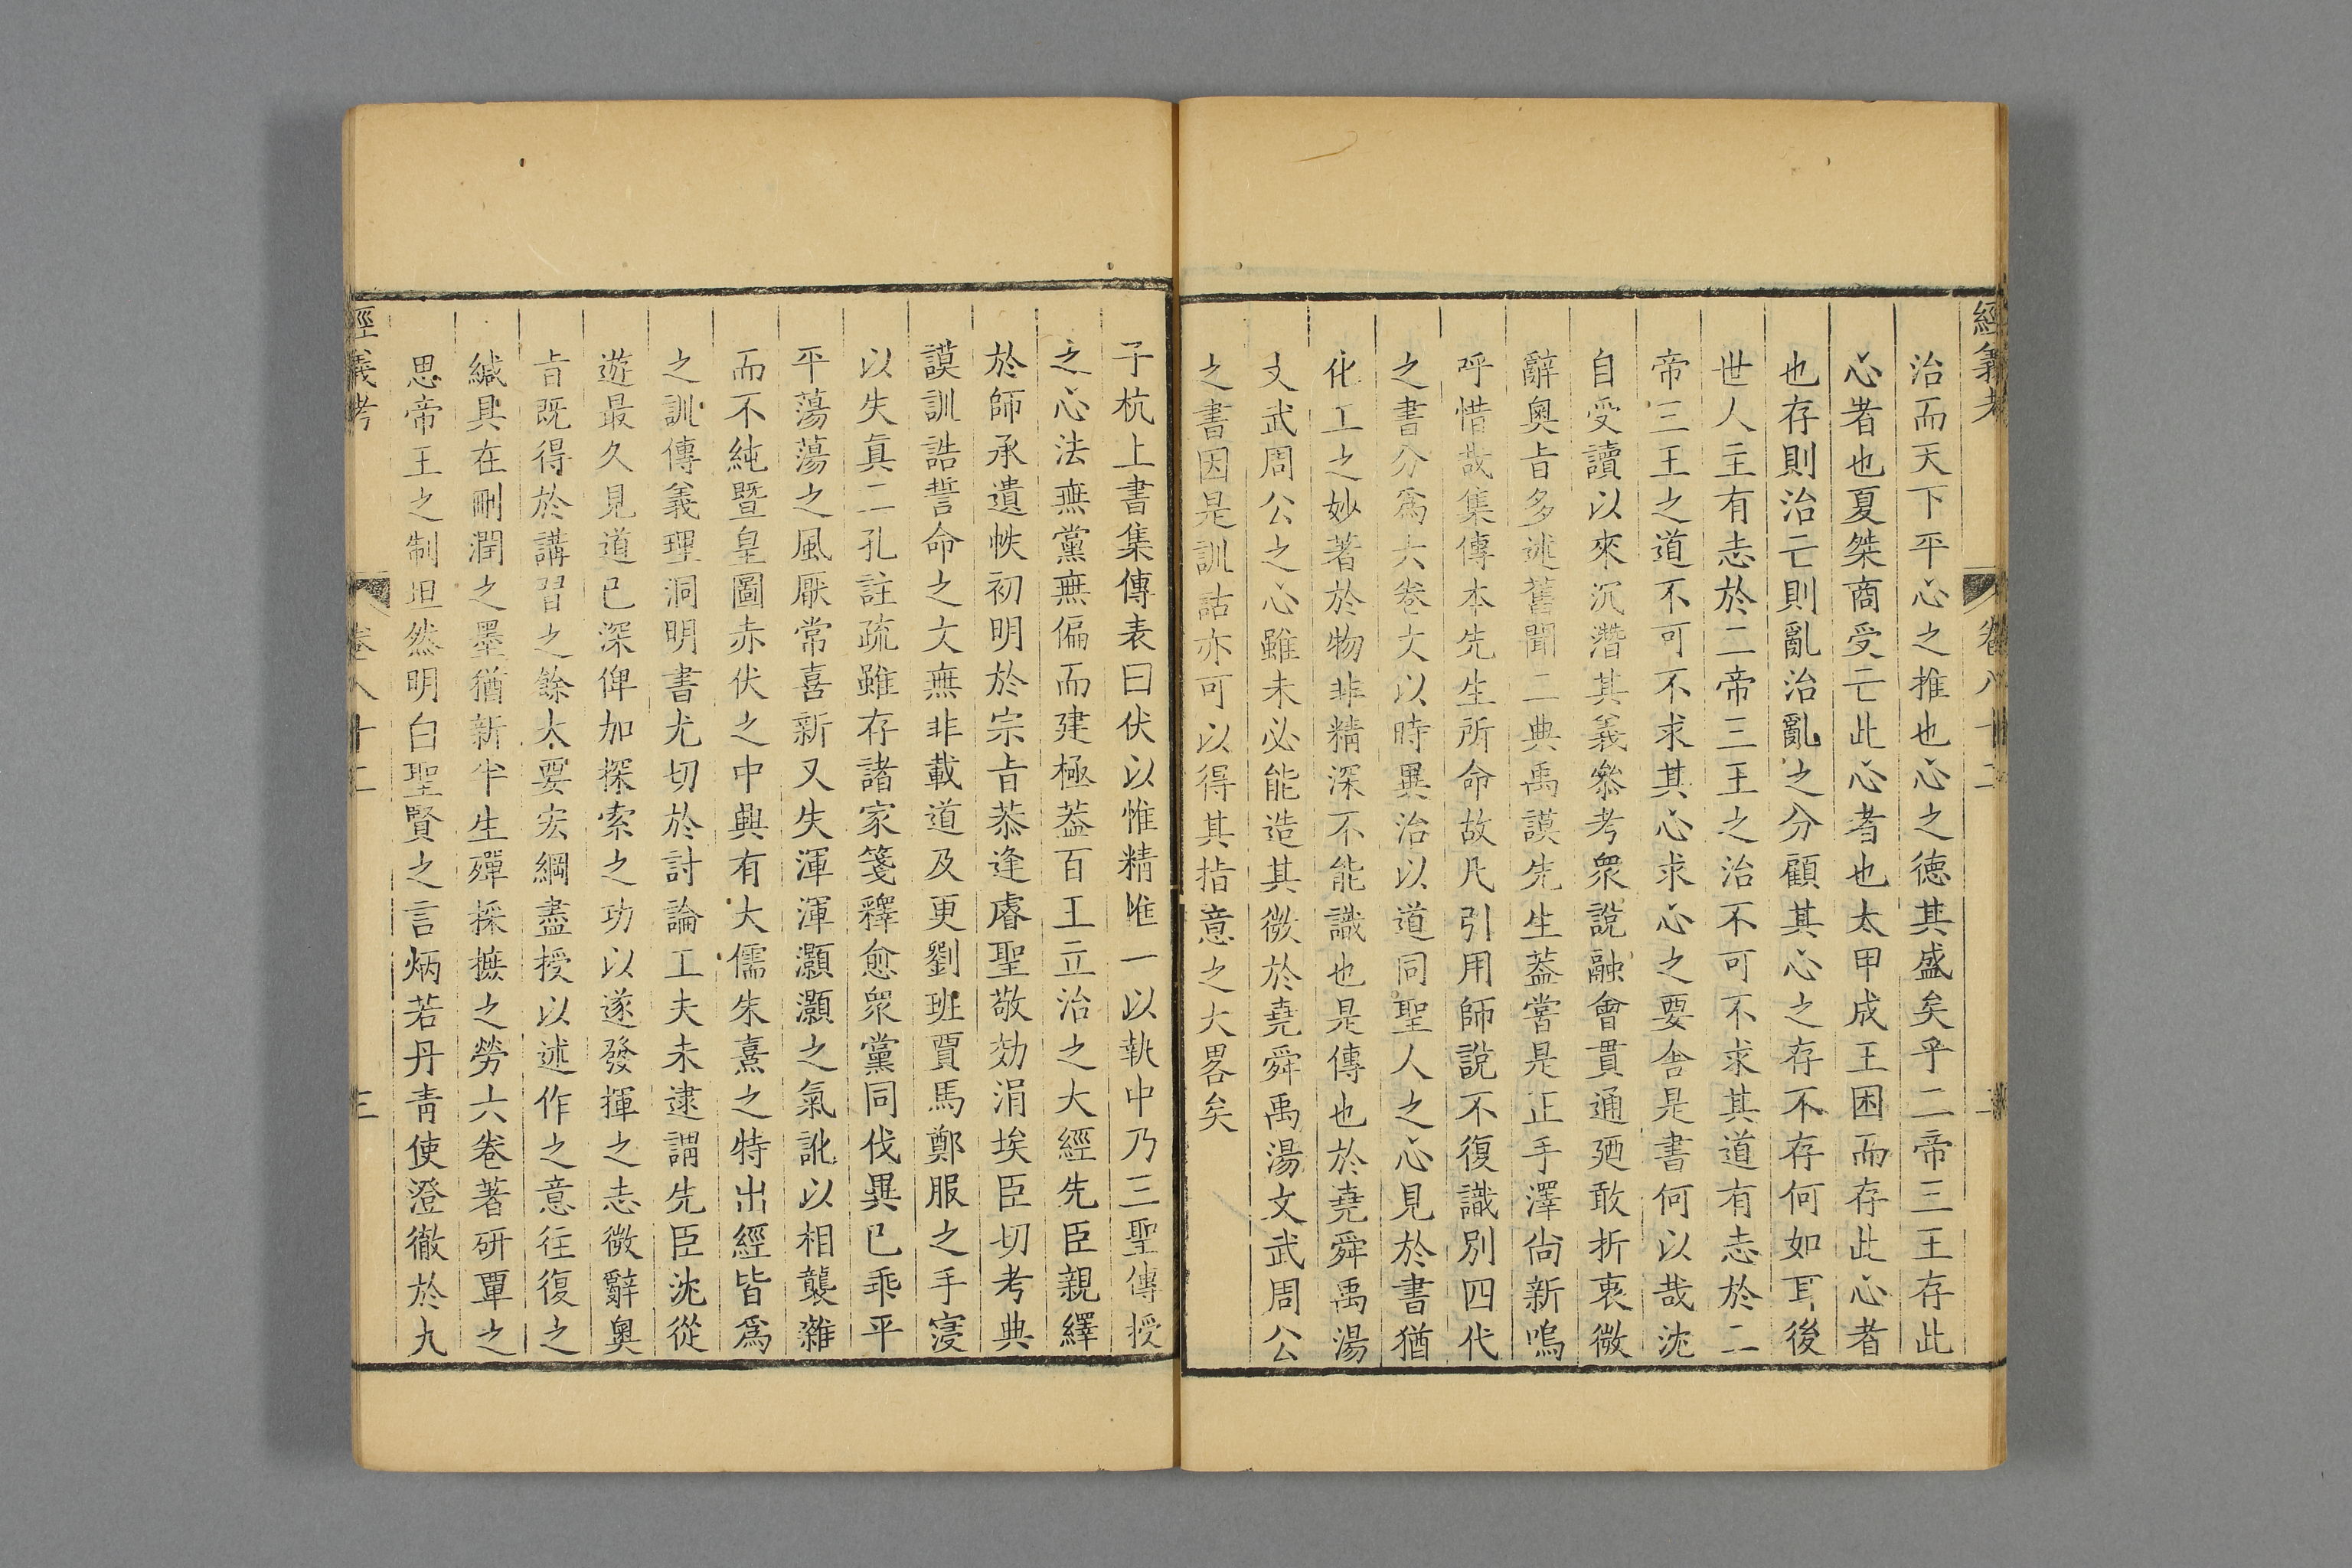 經義考 卷八十二
治而天下平心之推也心之德其盛矣乎二帝三王存此
心者也夏桀商受亡此心者也太甲成王困而存此心者
也存則治亡則亂治亂之分顧其心之存不存何如耳後
世人主有志於二帝三王之治不可不求其道有志於二
帝三王之道不可不求其心求心之要舍是書何以哉沈
自受讀以來沉潛其義叅考眾說融會貫通廼敢折衷微
辭奧旨多述舊聞二典禹謨先生葢嘗是正手澤尙新嗚
呼惜哉集傳本先生所命故凡引用師說不復識別四代
之書分爲六卷文以時異治以道同聖人之心見於書猶
化工之妙著於物非精深不能識也是傳也於堯舜禹湯
文武周公之心雖未必能造其微於堯舜禹湯文武周公
之書因是訓詁亦可以得其指意之大畧矣
子杭上書集傳表曰伏以惟精惟一以執中乃三聖傳授
之心法無黨無偏而建極葢百王立治之大經先臣親繹
於師承遺帙初明於宗旨恭逢睿聖敬効涓埃臣切考典
謨訓誥誓命之文無非載道及更劉班賈馬鄭服之手寖
以失真二孔註疏雖存諸家箋釋愈眾黨同伐異已乖平
平蕩蕩之風厭常喜新又失渾渾灝灝之氣訛以相襲雜
而不純暨皇圖赤伏之中興有大儒朱熹之特出經皆爲
之訓傳義理洞明書尤切於討論工夫未逮謂先臣沈從
遊最久見道已深俾加探索之功以遂發揮之志微辭奧
旨既得於講習之餘大要宏綱盡授以述作之意往復之
緘具在刪潤之墨猶新半生殫採摭之勞六卷著研覃之
思帝王之制坦然明白聖賢之言炳若丹青使澄徹於九
經義考 卷八十二 三